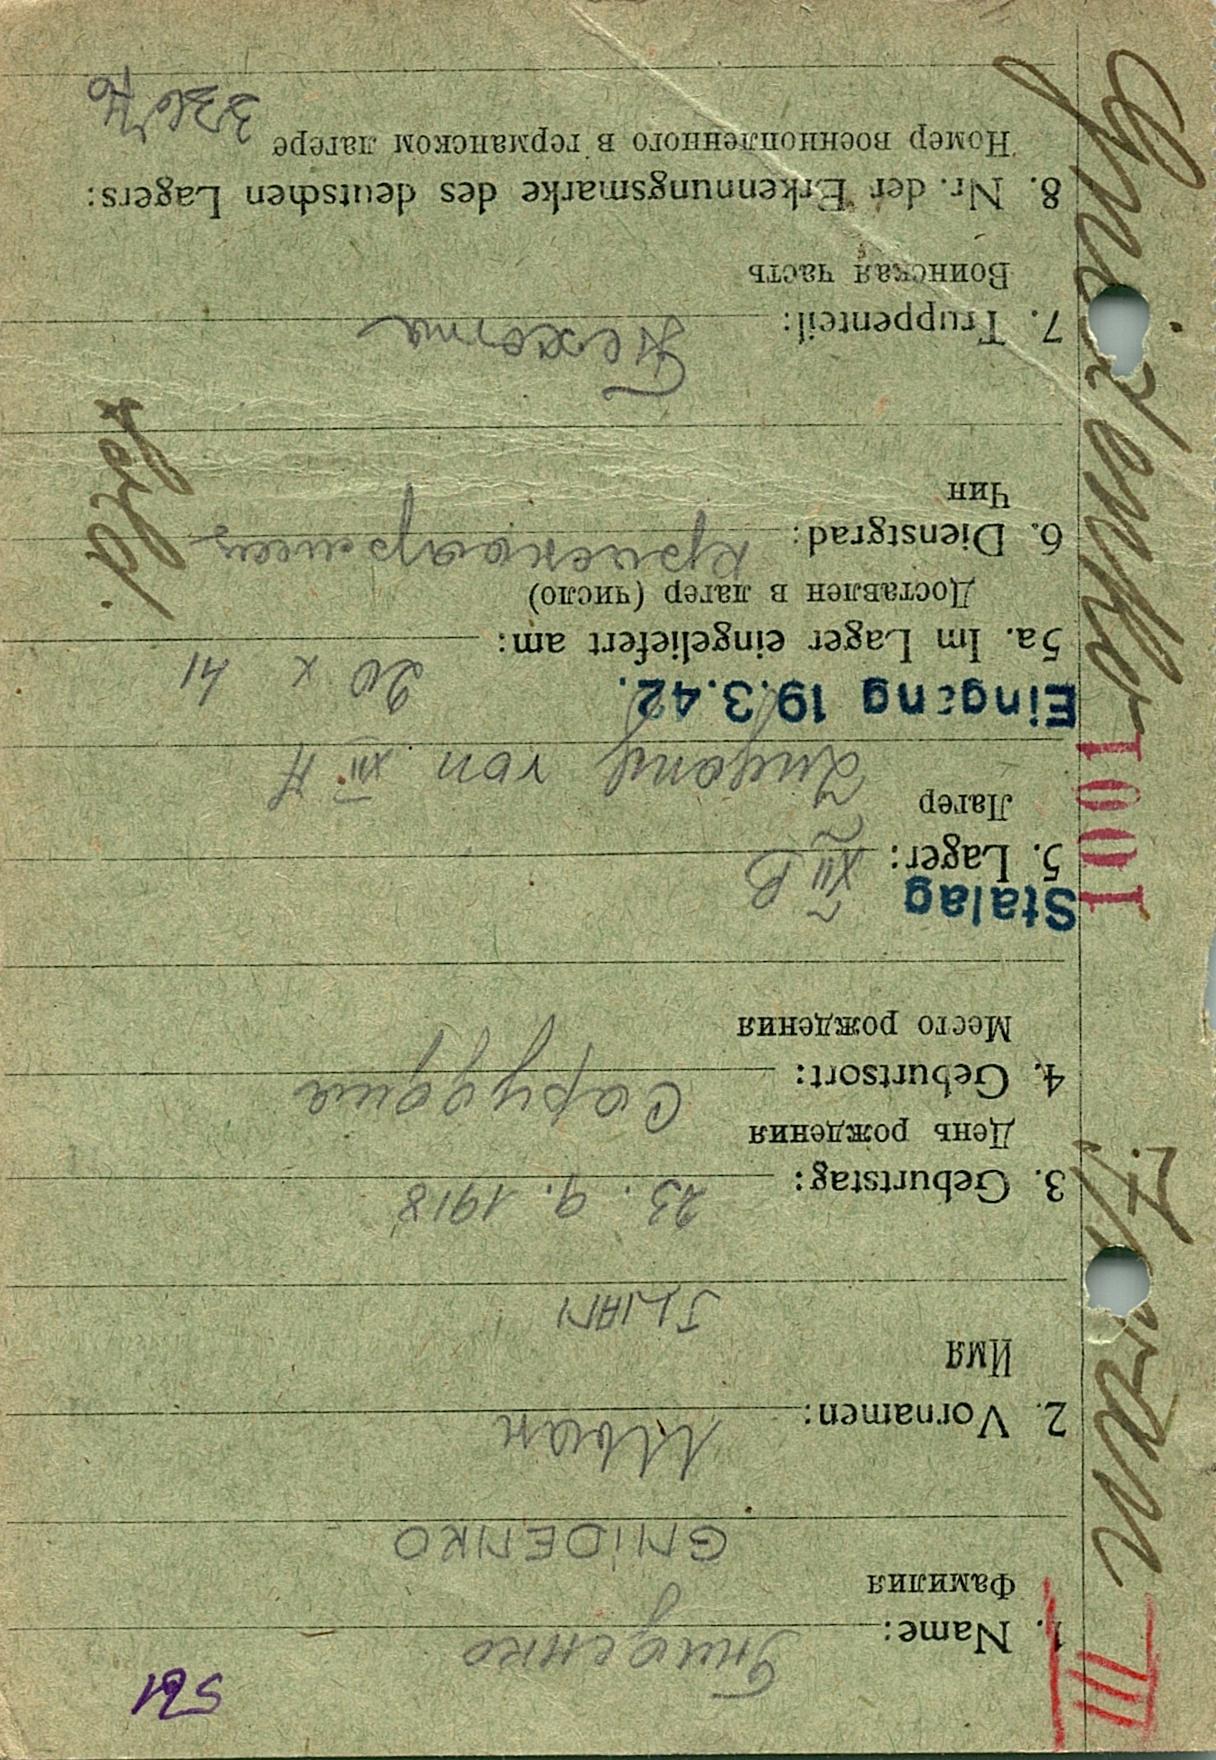 521
III
1. Name: Гниденко
Фамилия
GNIDENKO
2. Vornamen: Иван
Имя
IWAN
3. Geburtstag: 23. 9. 1918
День рождения
4. Geburtsort:
Место рождения
Stalag
5. Lager: XII B
Лагер
Zugang von XII A
Eingang 19.3.42.
20 X 41
5a. Im Lager eingeliefert am:
Доставлен в лагер (число)
6. Dienstgrad:
Чин
7. Truppenteil: Пехота
Воинская часть
8. Nr. der Erkennungsmarke des deutschen Lagers:
Номер военнопленного в германском лагере
Gnidenko
1001
Iwan